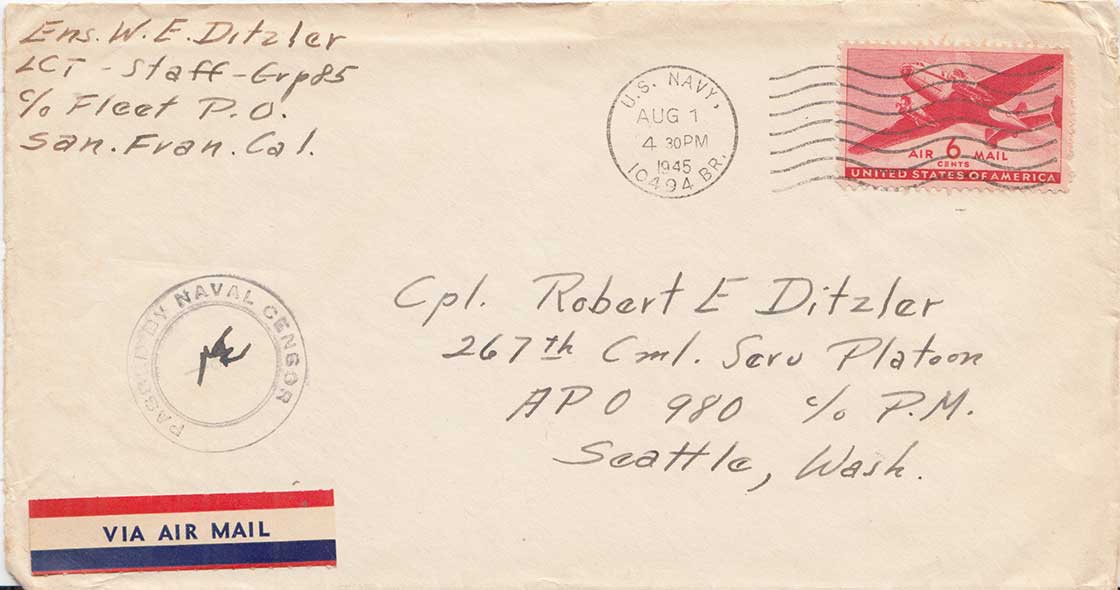 Ens. W. E. Ditzler
LCT - Staff - Grp 85
c/o Fleet P.O.
San. Fran. Cal.
U.S. NAVY,
AUG 1
4 30 PM
1945
10494 BR.
AIR 6 MAIL
CENTS
UNITED STATES OF AMERICA
PASSED BY NAVAL CENSOR
Cpl. Robert E Ditzler
267th Cml. Serv Platoon
APO 980 c/o P.M.
Seattle, Wash.
VIA AIR MAIL